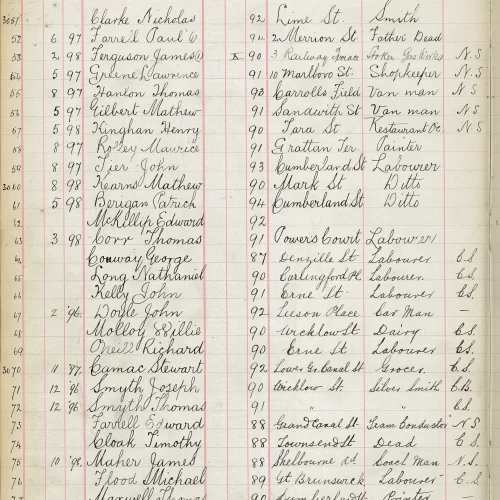 3051 Clarke Nicholas 92 Lime St. Smith
52 6 97 Farrell Paul 94 2 Merrion St. Father Dead
53 2 98 Ferguson James (1) x 90 3 Railway Stoker Gas Works N.S
54 5 97 Greene Lawrence 91 10 Marlboro St. Shopkeeper N S
55 8 97 Hanlon Thomas 93 Carrolls Field Van man N S
56 5 97 Gilbert Mathew 91 Sandwith St Van man N S
57 5 98 Kinghan Henry 90 Tara St Restaurant N S
58 8 97 Maurice 91 Grattan Ter Painter
59 8 97 Tier John 93 Cumberland St Labourer
3060 8 98 Kearns Mathew 90 Mark St Ditto
61 5 98 Berigan Patrick 94 Cumberland St Ditto
62 McKillip Edward 92
63 3 98 Corr Thomas 91 Powers Court Labourer
64 Conway George 87 Denzille St Labourer C.S.
65 Long Nathaniel 90 Carlingford Pl. Labourer. C.S.
66 Kelly John 91 Erne St Labourer C.S
67 2 '96 Doyle John 92 Leeson Place Car Man —
68 Molloy Willie 90 Wicklow St Dairy C.S.
69 O'neill Richard 90 Erne St Labourer C.S.
3070 11 '97. Camac Stewart 92 Lower Gr. Canal St Grocer. C.S.
71 12 '96 Smyth Joseph 90 Wicklow St. Silver Smith C.B.
72 12 '96 Smyth Thomas 91 " " C.S.
73 Farrell Edward 88 Grand Canal St Tram Conductor N.S
74 Cloak Timothy 88 Townsend St Dead C.S.
75 10 '98. Maher James 88 Shelbourne Rd Coach Man N.S.
76 Flood Michael 89 Gt Brunswick Labourer C.S
77 Maxwell Thomas 90 Cumberland St Printer —